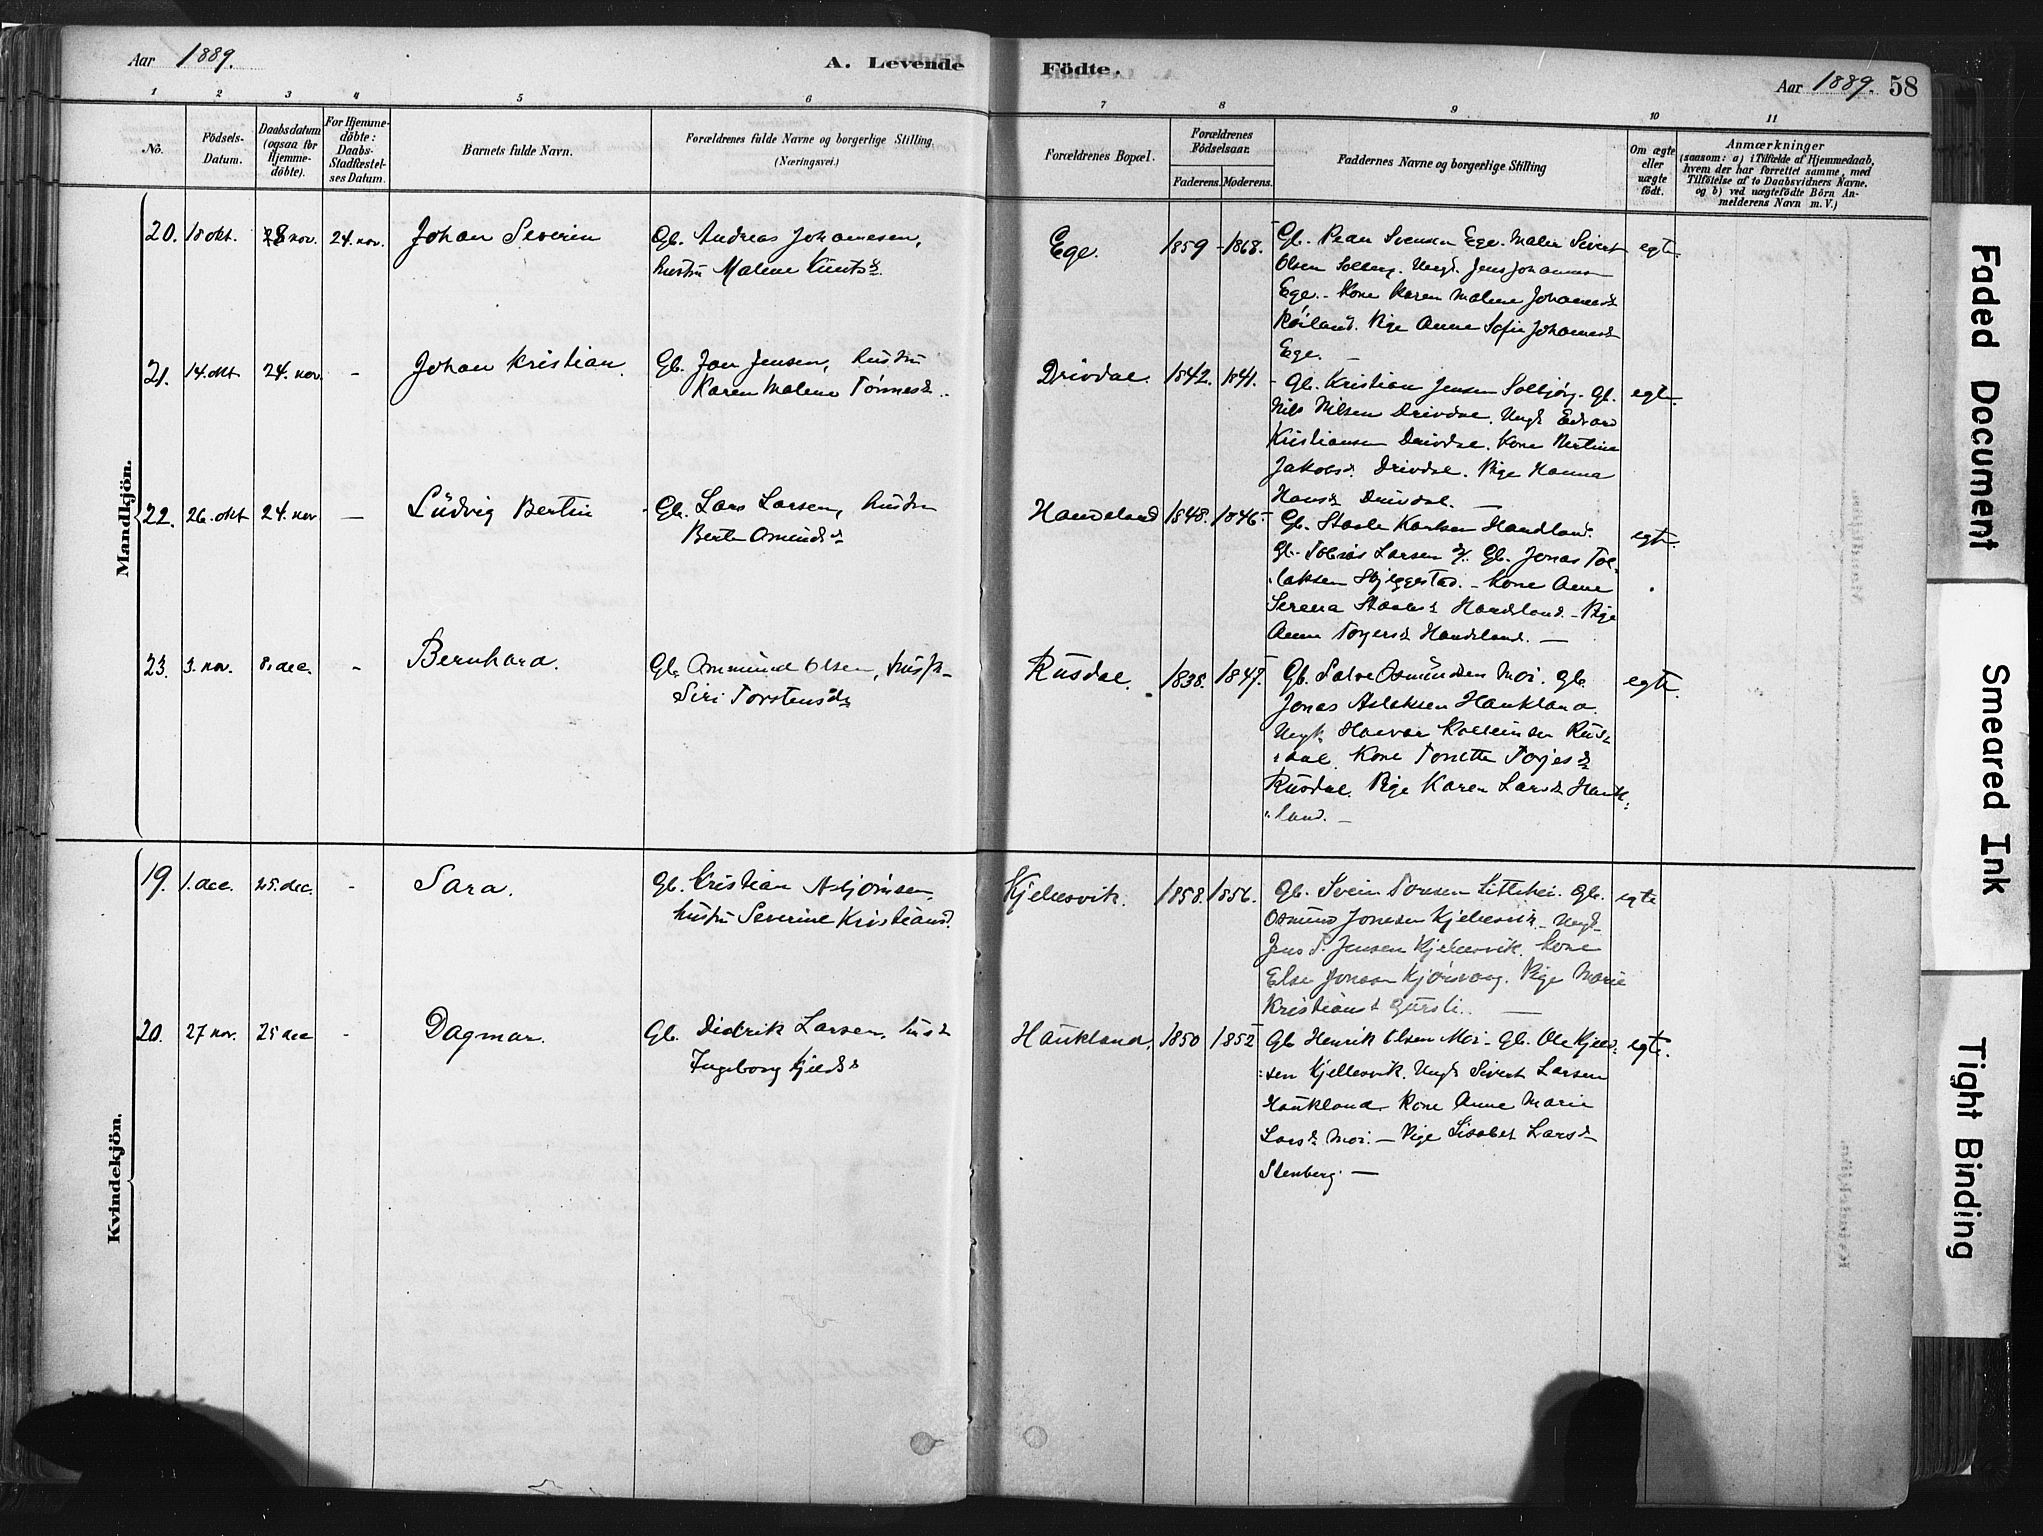 Aar 1889.
A. Levende Födte.
Aar 1889. 58
1 2 3 4 5 6 7 8 9 10 11
No.
Födsels-Datum.
Daabsdatum (ogsaa for Hjemme-döbte).
For Hjemme-döbte: Daabs-Stadfæstel-ses Datum.
Barnets fulde Navn.
Forældrenes fulde Navne og borgerlige Stilling. (Næringsvei.)
Forældrenes Bopæl.
Forældrenes Födselsaar.
Faderens. Moderens.
Faddernes Navne og borgerlige Stilling
Om ægte eller uægte födt.
Anmærkninger
(saasom: a) i Tilfælde af Hjemmedaab,
hvem der har forrettet samme, med
Tilföielse af to Daabsvidners Navne.
og b) ved uægtefödte Börn An-
melderens Navn m. V.)
Mandkjön.
20. 18 okt. nov. 24. nov. Johan Severin
Gb. Andreas Johannesen,
hustru Malene
Ege. 1859 - 1868.
Gb. Svensen Ege. Maler Sivert
Olsen Solberg. Ungk. Jens Johannes
Ege. Kone Karen Malene Johannesd
Pige Anne Sofie Johannesd
Ege. —
egte.
21. 14. okt 24. nov. - Johan Kristian.
Gb. Jan Jensen, hustru
Karen Malene Tönnesd.
Drivdal. 1842. 1841.
Gb. Kristian Jensen Gb.
Nils Nilsen Drivdal. Ungk Edvard
Kristiansen Drivdal. Kone
Jakobsd. Drivdal. Pige Hanna
Hansd Drivdal. —
egte.
22. 26. okt 24. nov — Ludvig Bertin
Gb. Lars Larsen, hustru
Berte Omundsd
Handeland 1848. 1846.
Gb. Staale Karlsen Handland.
Gb. Tobias Larsen Gb. Jonas Tol-
laksen Skjeggestad. - Kone Anne
Serena Staalesd Handeland - Pige
Anne Torgersd Handeland. —
egte.
23. 3. nov. 8. dec. - Bernhard.
Gb. Ommund Olsen, hustr.
Siri Torstensd
Rusdal. 1838. 1847.
Gb. Salve Osmundsen Moi. Gb.
Jonas Aslaksen Haukland.
Ungk. Rus-
dal. Kone Tonette Torjesd
Rusdal. Pige Karen Larsd Hauk-
land. —
egte.
Kvindekjön.
19. 1. dec. 25. dec. - Sara.
Gb. Kristian Asbjörnsen,
hustru Severine Kristiansd.
Kjellesvik. 1858. 1856.
Gb. Svein Tonesen Gb.
Osmund Jonesen Kjellesvik - Ungk
Jens S. Jensen Kjellesvik. Kone
Else Pige Marie
Kristiansd Gursli. —
egte
20. 27 nov. 25 dec - Dagmar.
Gb. Didrik Larsen, hust
Ingeborg Kjelsd
Haukland. 1850 1852
Gb Henrik Olsen Moi - Gb. Ole Kjeld-
sen Kjellesvik. Ungk Sivert Larsen
Haukland. Kone Anne Marie
Larsd Moi. — Pige Lisabet Larsd
Stenberg. —
egte.
Faded Document
Smeared Ink
Tight Binding